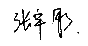 张宇彤